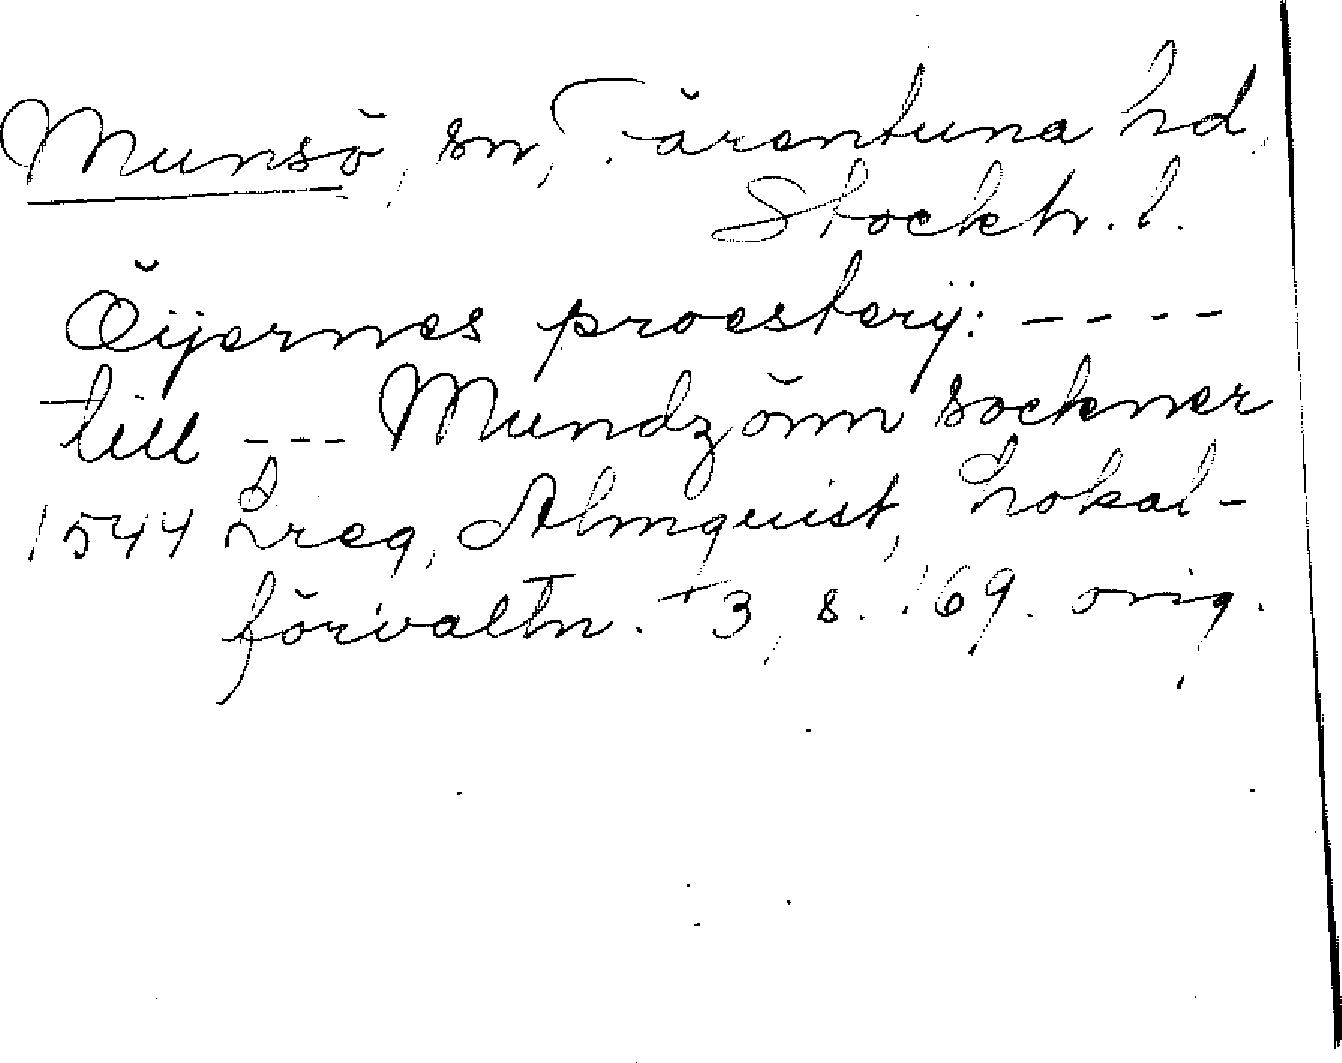 Munsö, sn, Färentuna hd,
Stockh. l.
Öijernes proesterij: ----
till --- Mundzönn sockner
1544 Lreg, Almquist, Lokal-
förvaltn. +3, s. 169. orig.